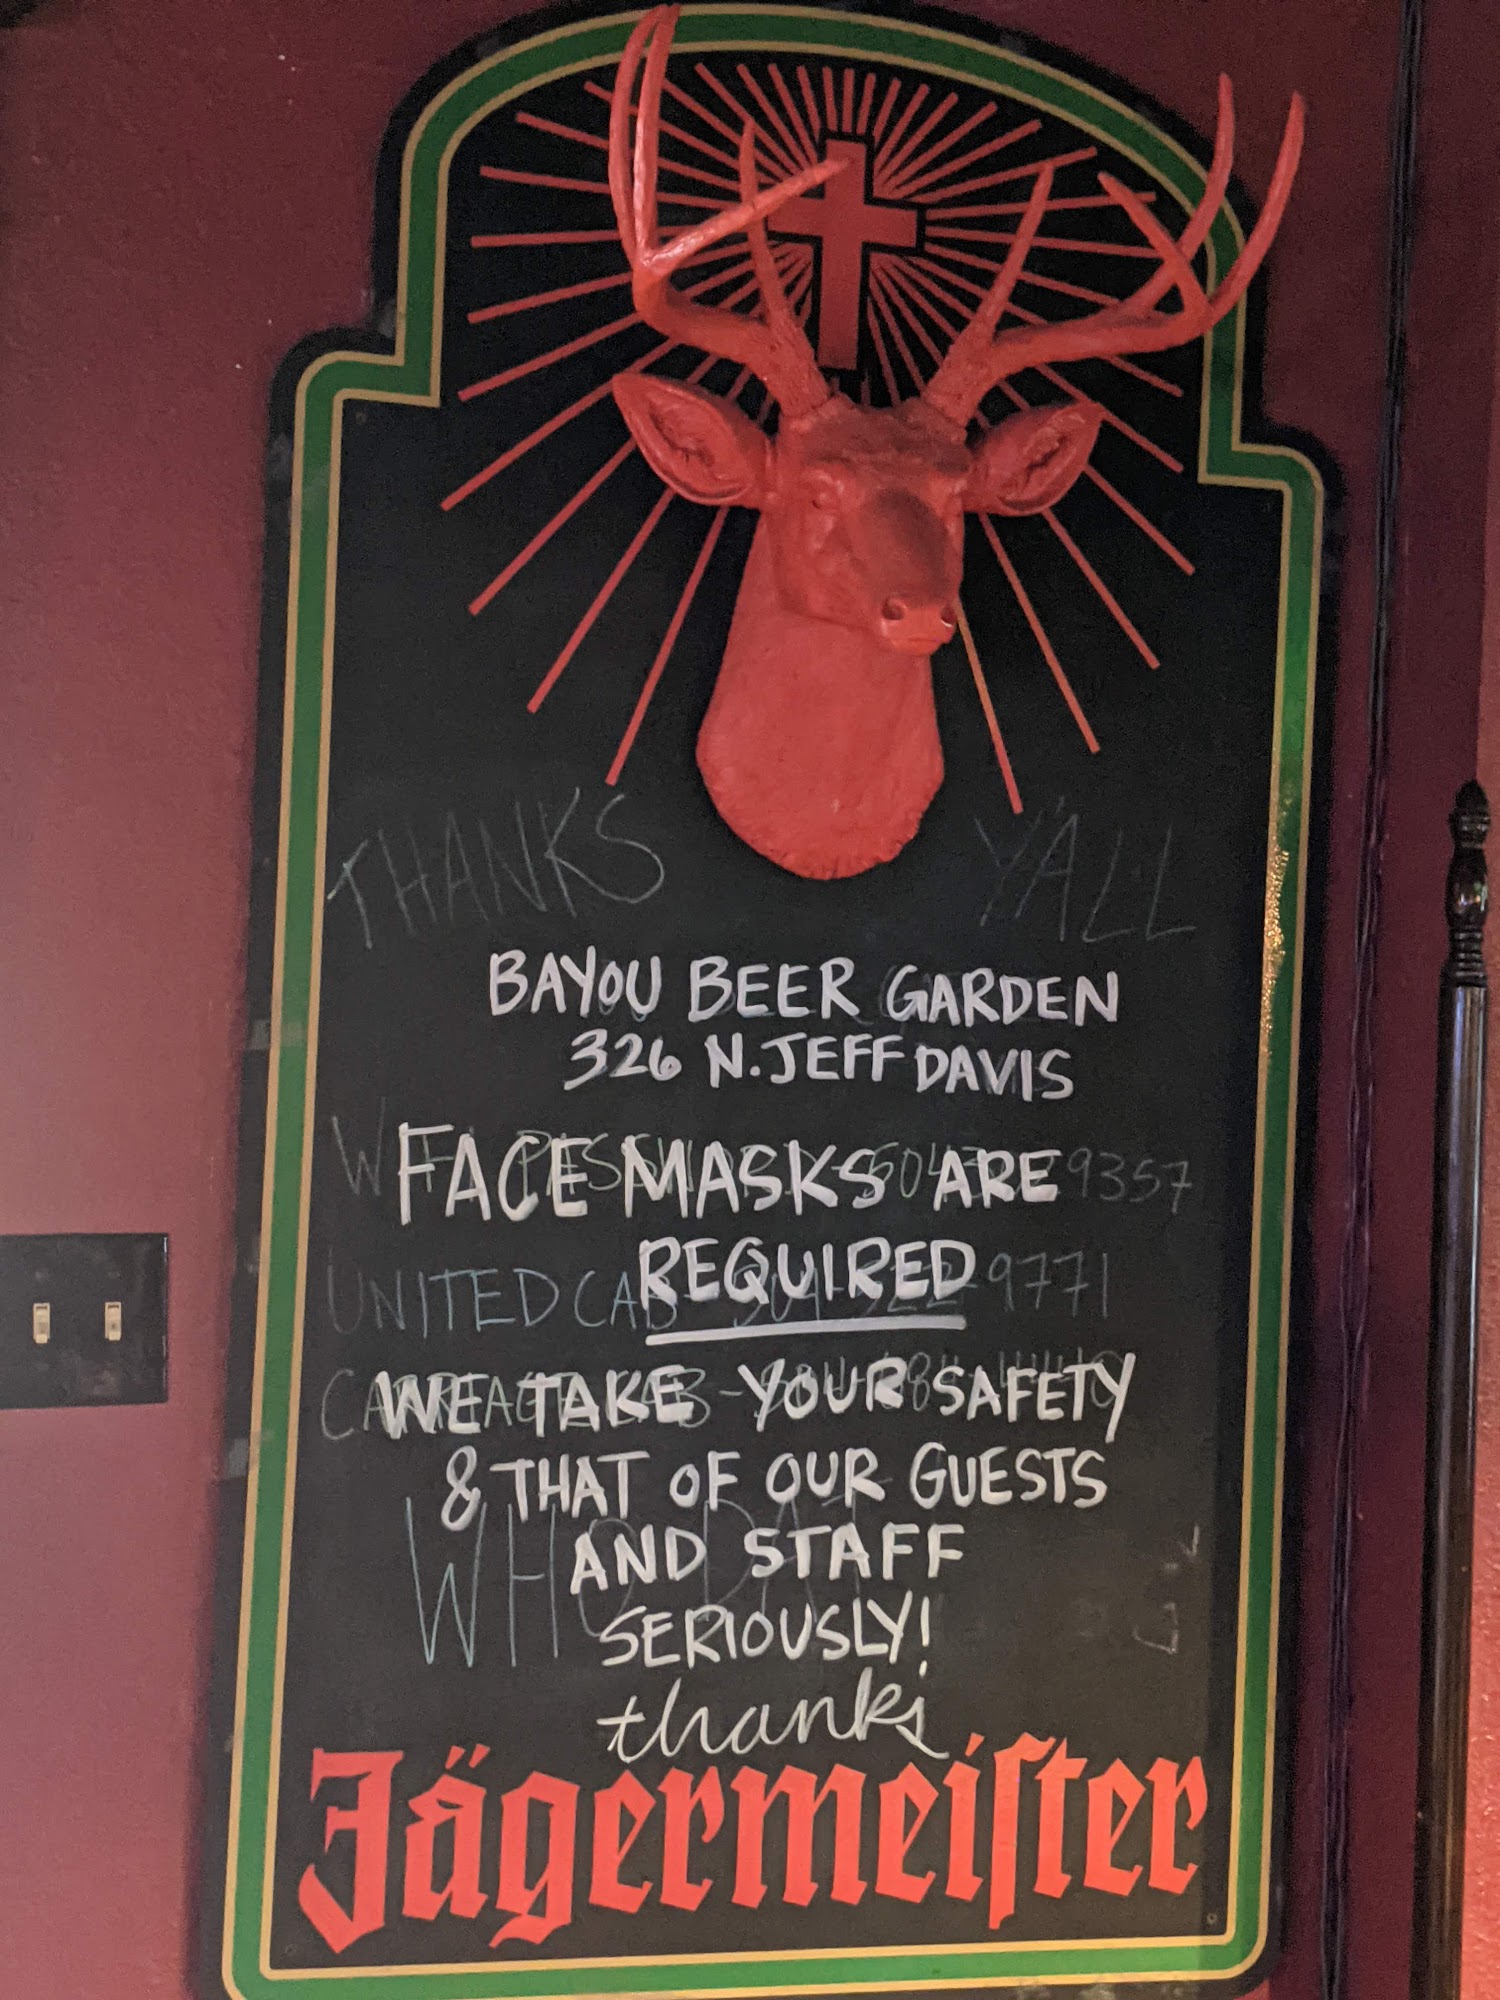 THANKS Y'ALL
BAYOU BEER GARDEN
326 N. JEFF DAVIS
FACE MASKS ARE
9357
REQUIRED
UNITED CAB 9771
WE TAKE YOUR SAFETY
& THAT OF OUR GUESTS
AND STAFF
WHO DAT
SERIOUSLY!
thanks
Jägermeiſter